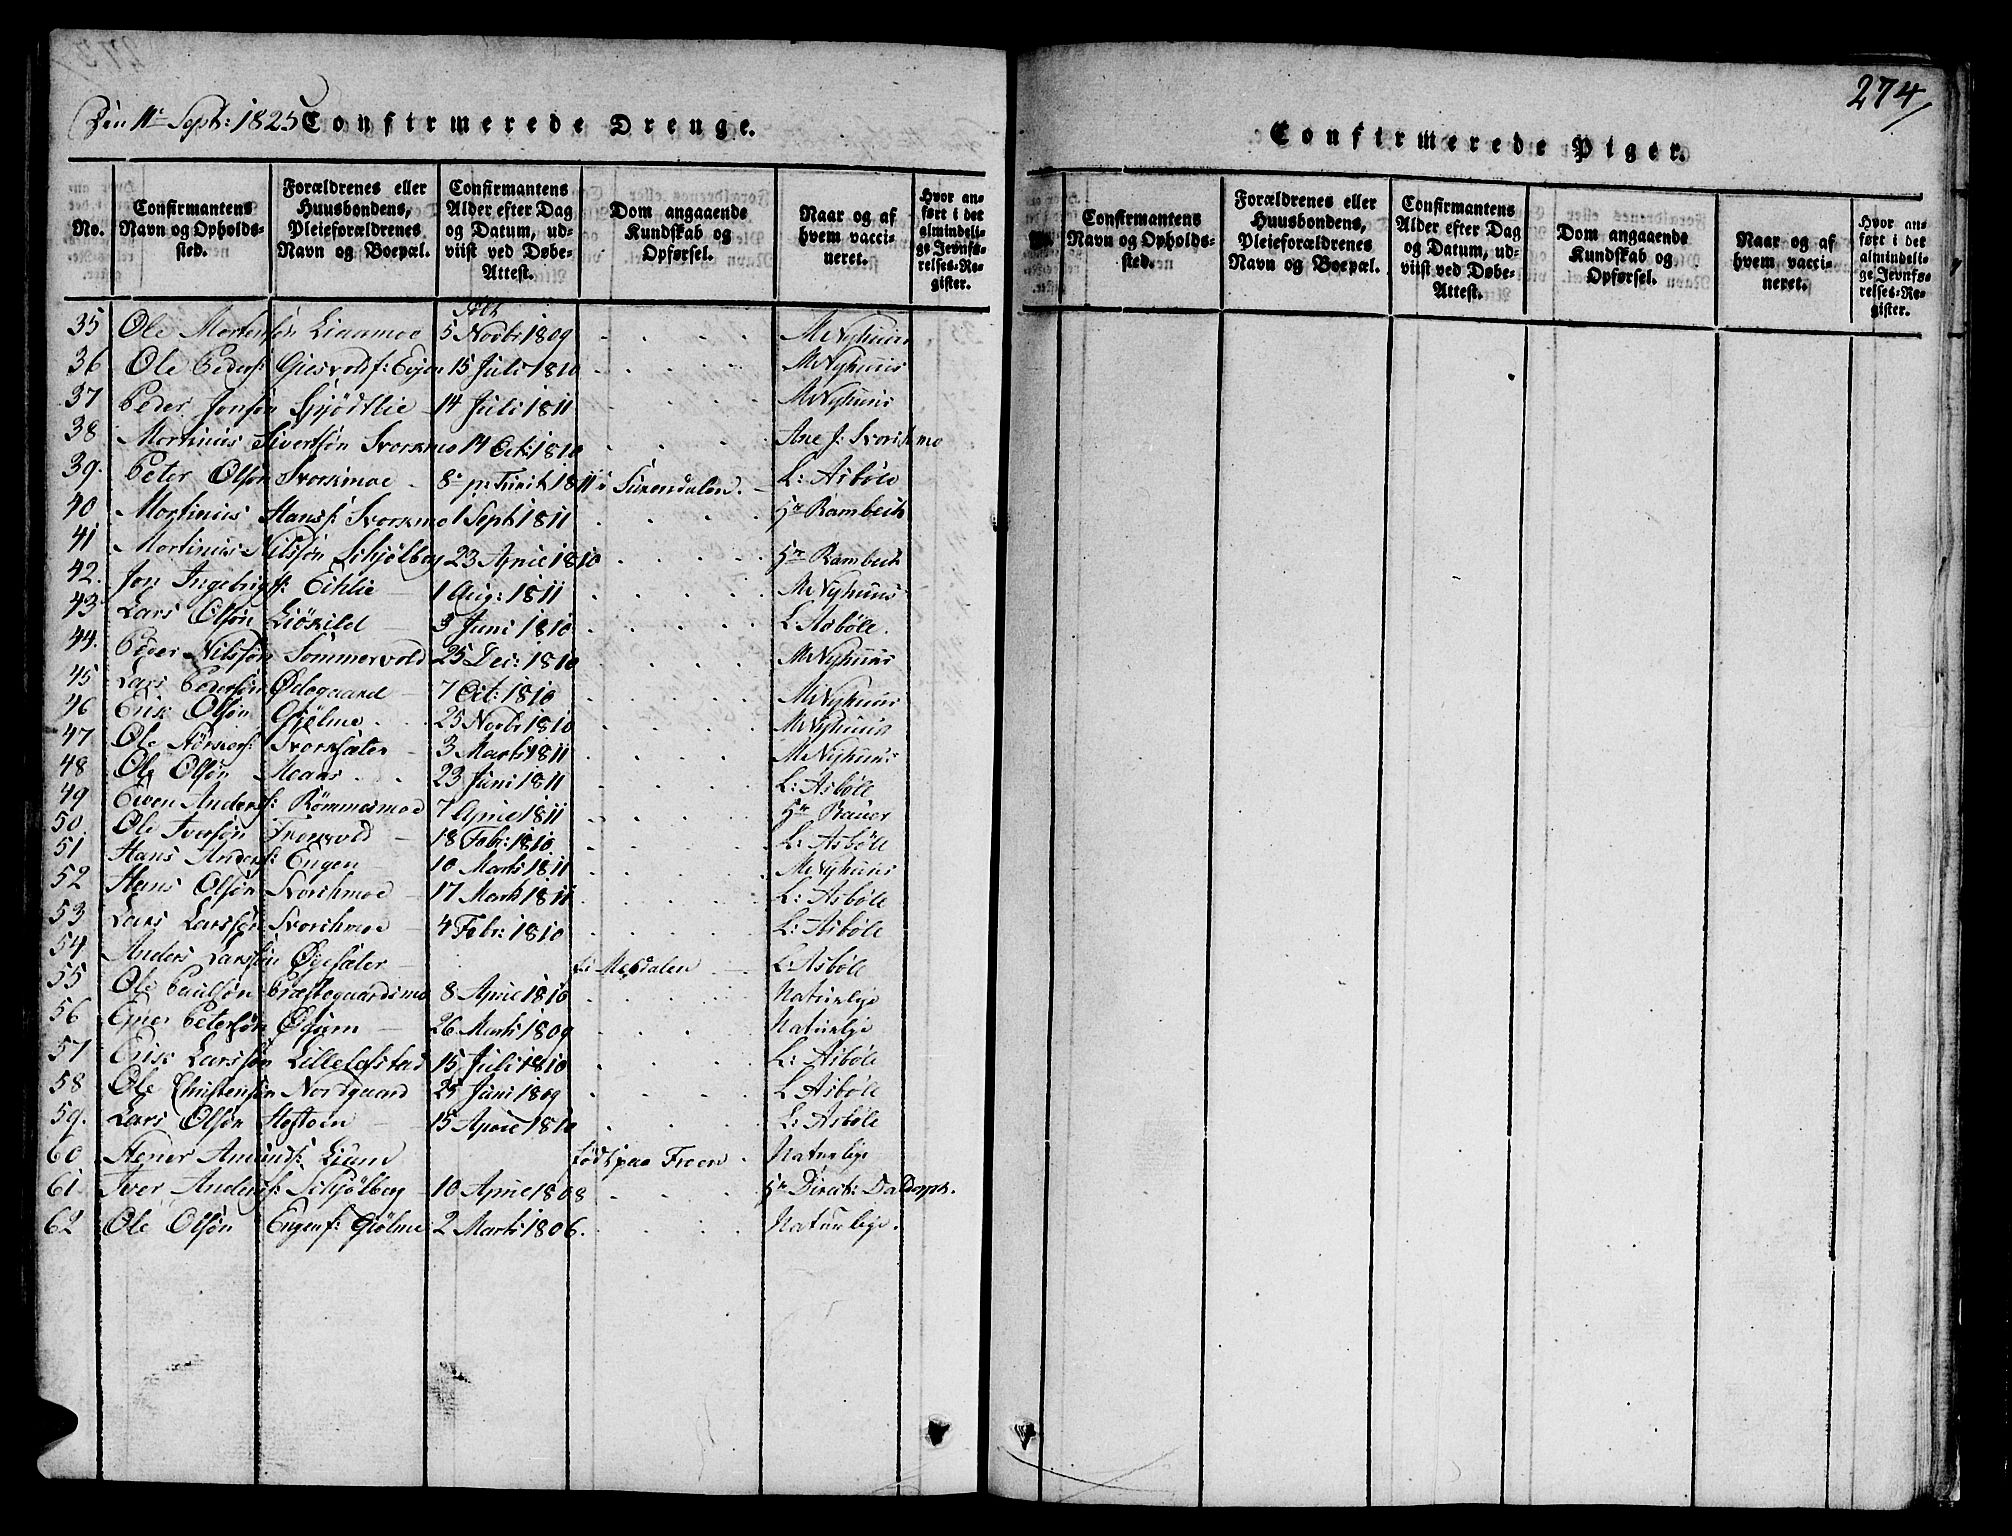 274/
Den 11te Sept: 1825 Confirmerede Drenge.
No.
Confirmantens Navn og Opholds-sted.
Forældrenes eller Huusbondens, Pleieforældrenes Navn og Boepæl.
Confirmantens Alder efter Dag og Datum, ud-viist ved Døbe-Attest.
Dom angaaende Kundskab og Opførsel.
Naar og af hvem vacci-neret.
Hvor an-ført i det almindeli-ge Jevnfø-relses-Re-gister.
35 Ole Mortensøn Liaamoe 5 Novbr 1809 M Nyhuus
36 Ole Peders: Giesvold f: Evjen 15 Juli 1810 M Nyhuus
37 Peder Jonsøn Spjødtlie 14 Juli 1811 M Nyhuus
38 Mortinus Sivertsøn Svorkmo 14 Oct: 1810 Ane J: Svorchmo
39. Peter Olsøn Svorkmoe 8de p: Trinit 1811 i Surendalen. L: Asbøle
40 Mortinus Hans: Svorkmo 1 Sept 1811 Hr Rambech
41 Mortinus Nilssøn Schjølberg 23 April 1810 Hr Rambech
42. Jon Ingebrigts: Eihlie 1 Aug: 1811 M Nyhuus
43 Lars Olsøn Liøkild 3 Juni 1810 L Asbøle.
44. Peder Nilssøn Sommervold 25 Dec: 1810 M Nyhuus
45 Lars Pedersøn Ødegaard 7 Oct: 1810 M Nyhuus
46 Erik Olsøn Gjølme 25 Novbr 1810 M Nyhuus
47 Ole Størkers: Svorksæter 3 Marts 1811 M Nyhuus
48 Ole Olsøn Moaas 23 Juni 1811 L: Asbøle
49 Even Anders: Rømmesmoe 7 April 1811 Hr Bauer
50. Ole Iversøn Troevold 18 Febr: 1810. L: Asbøle
51 Hans Anders: Engen 10 Marts 1811 M Nyhuus
52 Hans Olsøn Svorchmoe 17 Marts 1811 L: Asbøle
53 Lars Larssøn Svorchmoe 4 Febr: 1810 L: Asbøle
54 Anders Larssøn Øyesæter i Meldalen L: Asbøle
55 Ole Paulsøn Præstegaardsmo 8 April 1810 Naturlige
56 Ener Petersøn Øhjem 26 Marts 1809 Naturlige
57 Erik Larssøn Lillelefstad 15 Juli 1810 L: Asbøle
58 Ole Christensøn Nordgaard 25 Juni 1809 L Asbøle
59. Lars Olsøn Hoftoen 15 April 1810 L: Asbøle
60 Stener Amunds: Liam Født paa Froen Naturlige
61 Iver Anders: Schjølberg 10 April 1808 Hr Direct: Dalderph.
62 Ole Olsøn Engen f: Gjølme 2 Marts 1806. Naturlige.
Confirmerede Piger.
Confirmantens Navn og Opholds-sted.
Forældrenes eller Huusbondens, Pleieforældrenes Navn og Boepæl.
Confirmantens Alder efter Dag og Datum, ud-viist ved Døbe-Attest.
Dom angaaende Kundskab og Opførsel.
Naar og af hvem vacci-neret.
Hvor an-ført i det almindeli-ge Jevnfø-relses-Re-gister.